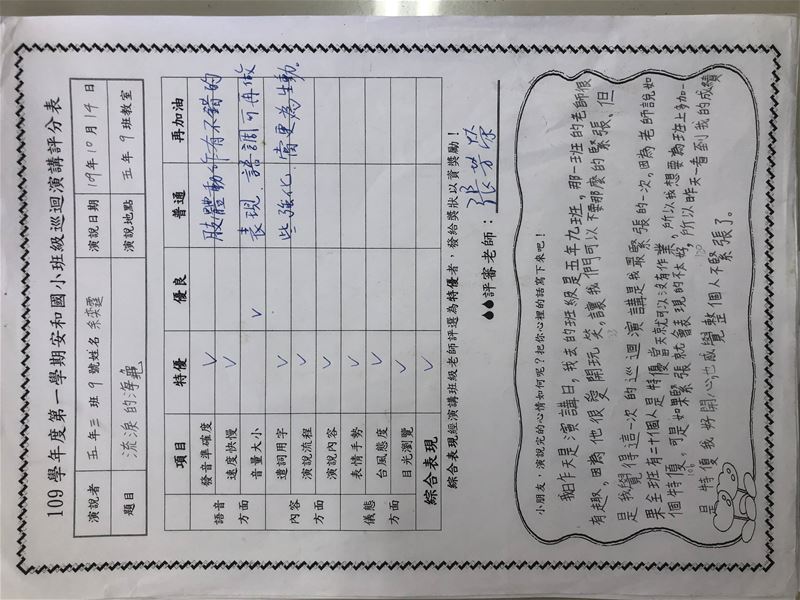 109學年度第一學期安和國小班級巡迴演講評分表
演說者 五年三班9號姓名余奕霆 演說日期 109年10月14日
題目 流淚的海龜 演說地點 五年9班教室
項目 特優 優良 普通 再加油
語音方面 發音準確度 ✓
速度快慢 ✓
音量大小 ✓
內容方面 遣詞用字 ✓
演說流程 ✓
演說內容 ✓
儀態方面 表情手勢 ✓
台風態度 ✓
目光瀏覽 ✓
綜合表現 ✓
肢體動作有不錯的
表現.語調可再做
些強化.會更為生動.
綜合表現經演講班級老師評選為特優者,發給獎狀以資獎勵!
評審老師:張芳榮
小朋友,演說完的心情如何呢?把你心裡的話寫下來吧!
我昨天是演講日,我去的班級是五年九班,那一班的老師很
有趣,因為他很愛開玩笑,讓我們可以不要那麼的緊張、但
是我覺得這一次的巡迴演講是我最緊張的一次,因為老師說如
果全班有二十個人是特優當天就可以沒有作業,所以我想要為班上多加一
個特優,可是如果緊張就會表現的不太好,所以昨天一看到我的成績
是特優我好開心,也感覺整個人不緊張了。